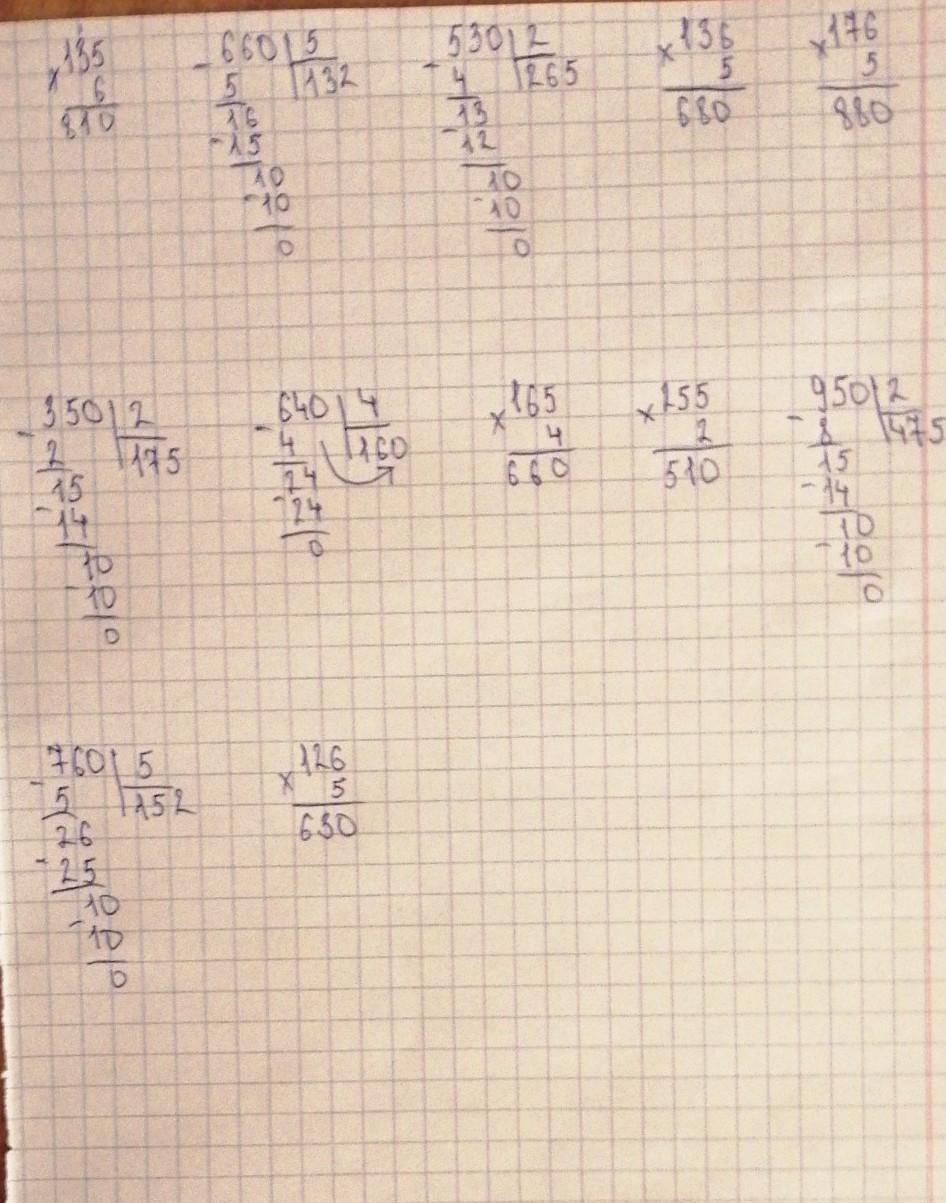 ×135 -660|5 -530|2 ×136 ×176
6 5 132 4 265 5 5
810 16 13 680 880
-15 -12
10 10
-10 -10
0 0
-350|2 -640|4 ×165 ×255 -950|2
2 175 4 160 4 2 8 475
15 24 660 510 15
-14 -24 -14
10 0 10
-10 -10
0 0
-760|5 ×126
5 152 5
26 630
-25
10
-10
0